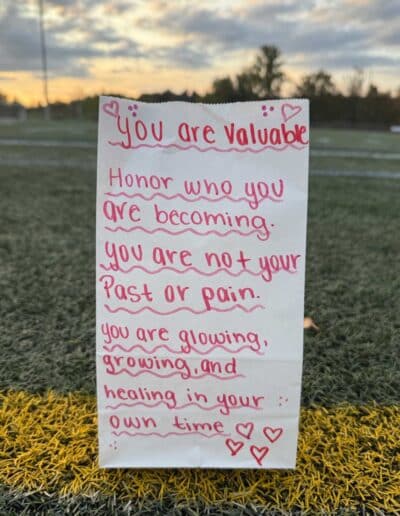 You are Valuable
Honor who you
are becoming.
You are not your
Past or pain.
you are glowing,
growing, and
healing in your
own time